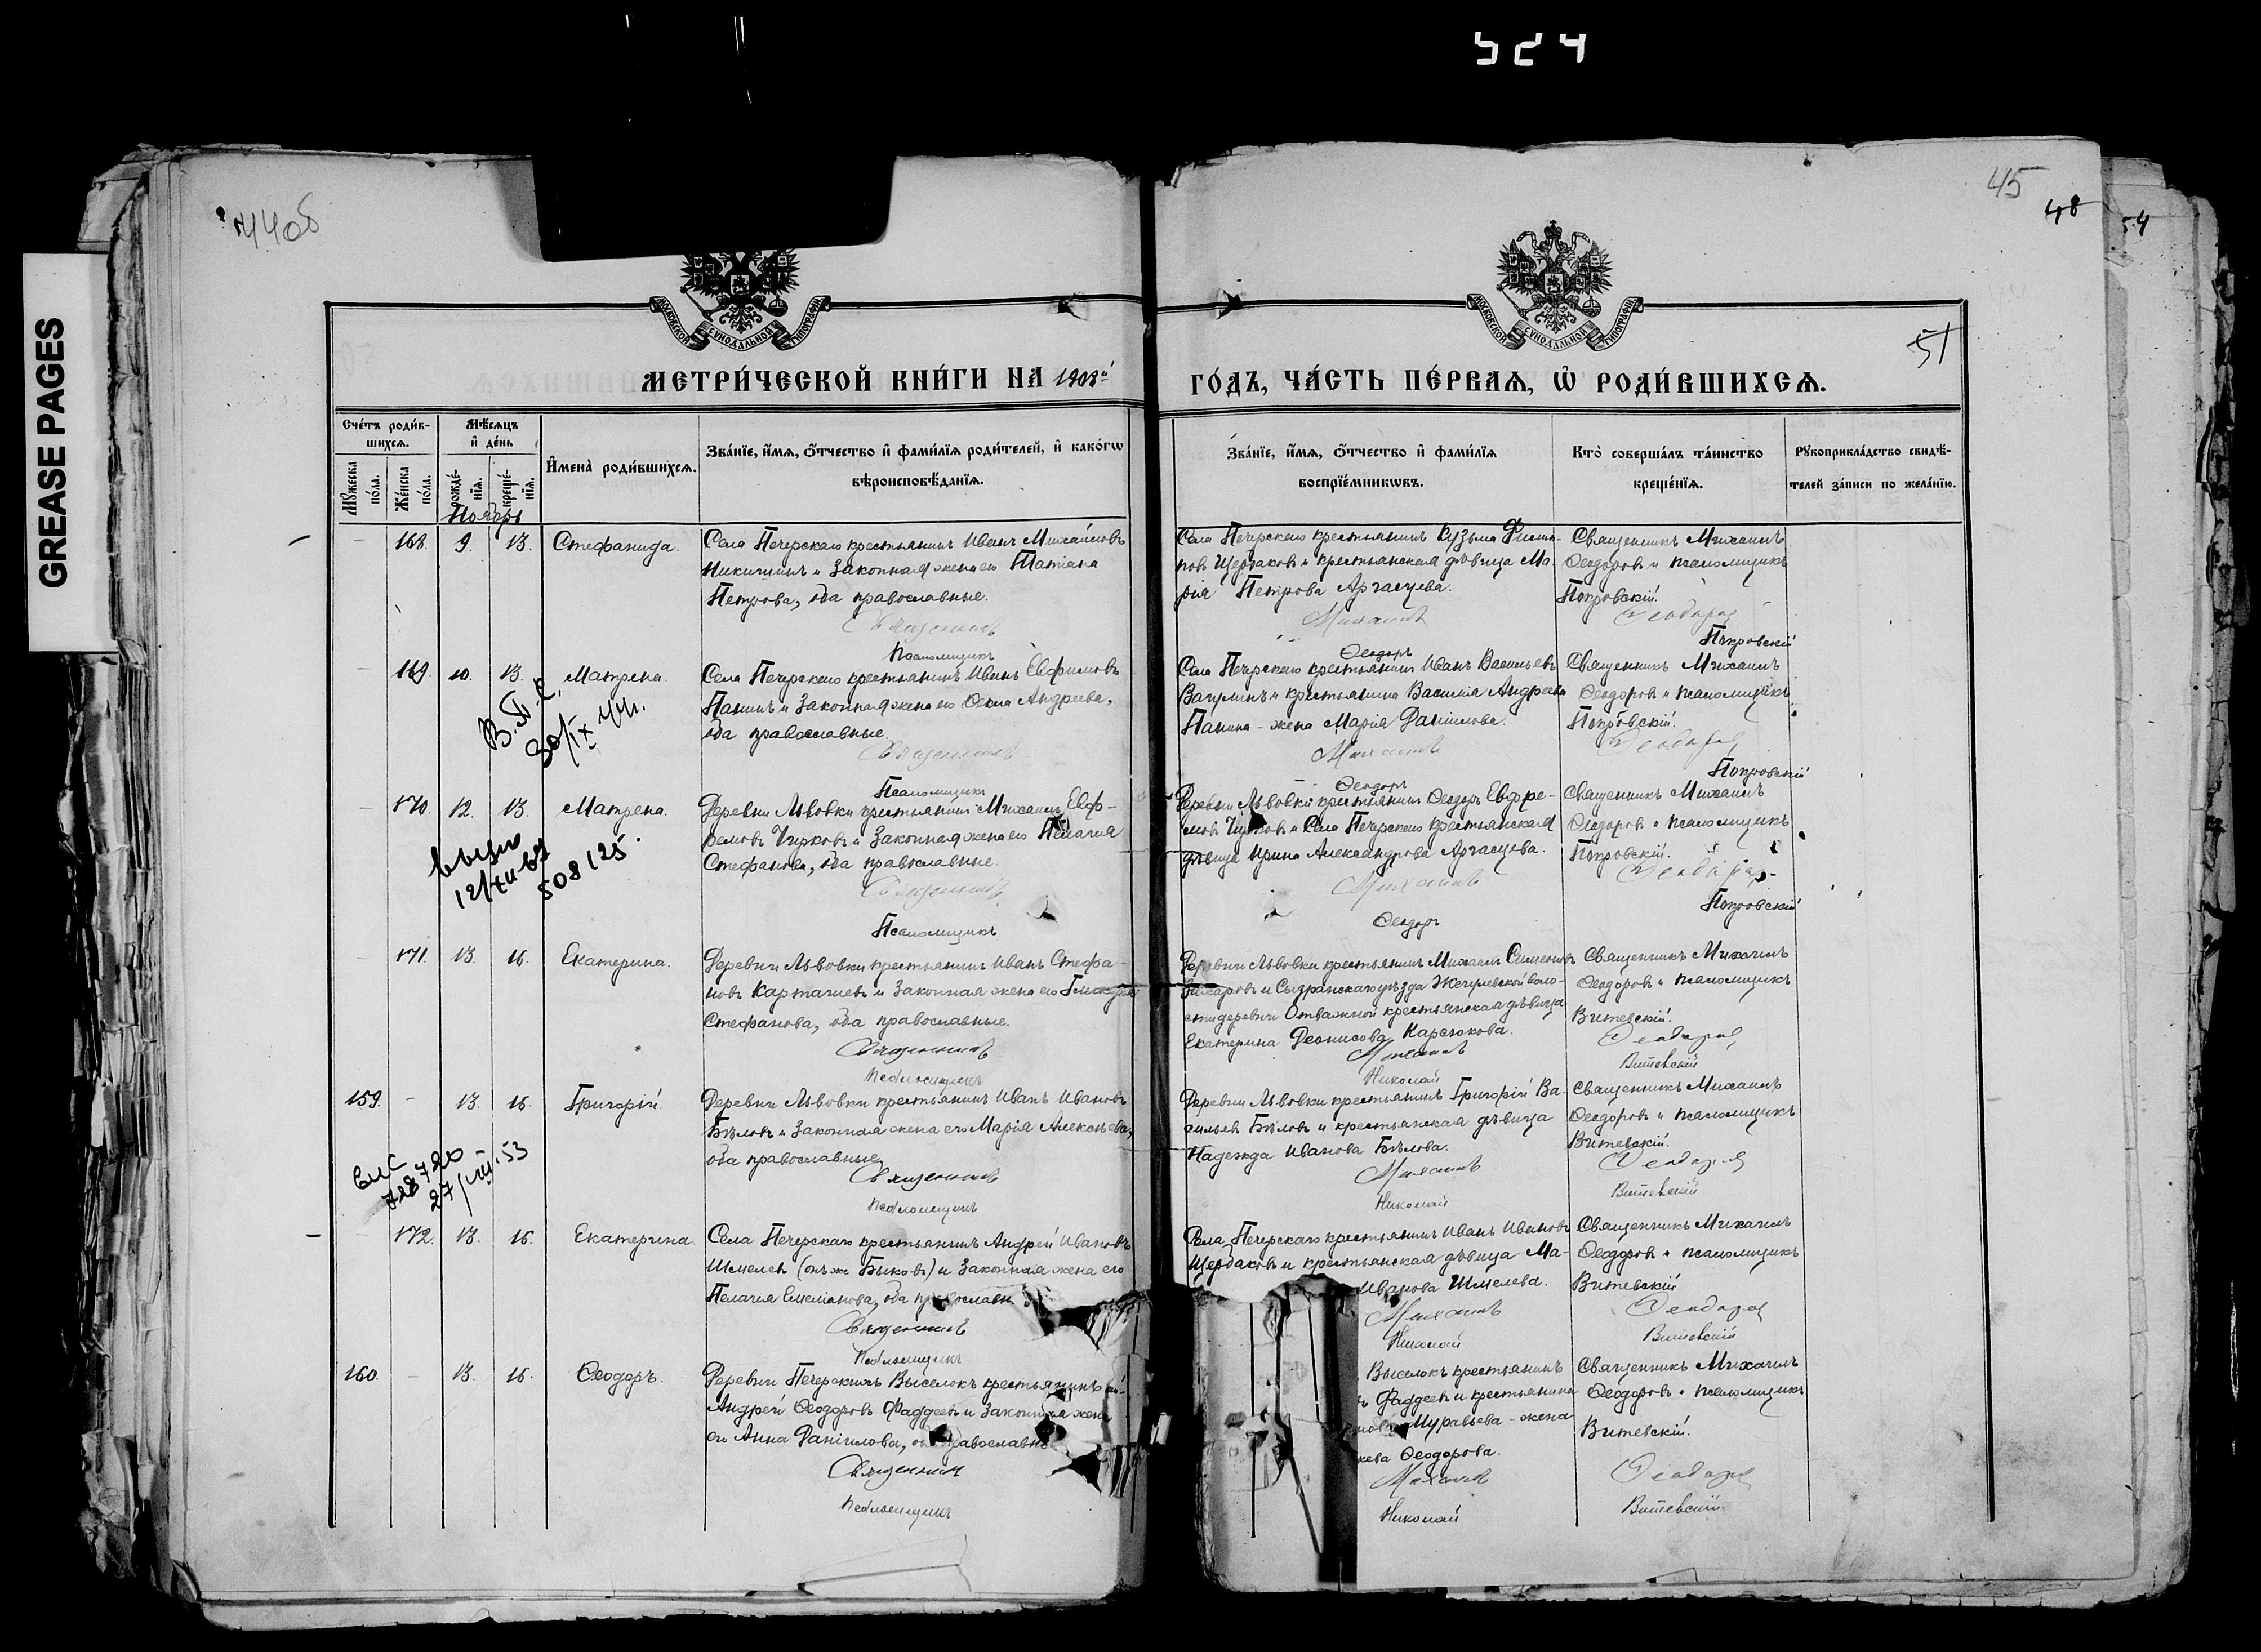 524
GREASE PAGES
44об
45
48
54
51
МОСКОВСКОЙ СѴНОДАЛЬНОЙ ТИПОГРАФІИ
МОСКОВСКОЙ СѴНОДАЛЬНОЙ ТИПОГРАФІИ
МЕТРИ́ЧЕСКОЙ КНИ́ГИ НА 1908й
ГО́ДЪ, ЧА́СТЬ ПЕ́РВАѦ, Ѡ҆ РОДИ́ВШИХСѦ.
Сче́тъ роди́в-
шихсѧ.
Мꙋ́жеска по́ла.
Же́нска по́ла.
Мѣ́сѧцъ
и҆ де́нь
рожде́-нїѧ.
креще́-нїѧ.
И҆мена̀ роди́вшихсѧ.
Зва́нїе, и҆́мѧ, ѻ҆́тчество и҆ фами́лїѧ роди́телей, и҆ како́гѡ
вѣроисповѣ́данїѧ.
Зва́нїе, и҆́мѧ, ѻ҆́тчество и҆ фами́лїѧ
воспрїе́мникѡвъ.
Кто̀ соверша́лъ та́инство
креще́нїѧ.
Рꙋкоприкла́дство свидѣ́-
телей за́писи по жела́нїю.
Ноябрь
168. 9. 13. Стефанида.
Села Печерскаго крестьянинъ Иванъ Михайловъ
Никитинъ и законная жена его Татіана
Петрова, оба православные.
Священникъ
Псаломщикъ
Села Печерскаго крестьянинъ Кузьма
Щербаковъ и крестьянская дѣвица Ма-
рія Петрова Аргасцева.
Михаилъ
Ѳеодоръ
Священникъ Михаилъ
Ѳеодоровъ и псаломщикъ
Покровскій.
Ѳеодоровъ
Покровскій
169. 10. 13. Матрена.
30/IX 44г.
Села Печерскаго крестьянинъ Иванъ Евфимовъ
Панинъ и законная жена его Ѳекла Андреева,
оба православные.
Священникъ
Псаломщикъ
Села Печерскаго крестьянинъ Иванъ Васильевъ
и крестьянина Василія Андреева
Панина - жена Марія Даніилова.
Михаилъ
Ѳеодоръ
Священникъ Михаилъ
Ѳеодоровъ и псаломщикъ
Покровскій.
Ѳеодоровъ
Покровскій
170. 12. 13. Матрена.
12/XII 67
508125.
Деревни Львовки крестьянинъ Михаилъ Евф-
ремовъ Чурковъ и законная жена его Пелагія
Стефанова, оба православные.
Священникъ
Псаломщикъ
Деревни Львовки крестьянинъ Ѳеодоръ Евфре-
мовъ Чурковъ и Села Печерскаго крестьянская
дѣвица Ирина Александрова Аргасцева.
Михаилъ
Ѳеодоръ
Священникъ Михаилъ
Ѳеодоровъ и псаломщикъ
Покровскій.
Ѳеодоровъ
Покровскій
171. 13. 16. Екатерина.
Деревни Львовки крестьянинъ Иванъ Стефа-
новъ Карташевъ и законная жена его
Стефанова, оба православные.
Священникъ
Псаломщикъ
Деревни Львовки крестьянинъ Михаилъ Симеоновъ
и Сызранскаго уѣзда Жегулевской воло-
сти деревни Отважной крестьянская дѣвица
Екатерина Деонисова Карсюкова.
Михаилъ
Николай
Священникъ Михаилъ
Ѳеодоровъ и псаломщикъ
Витевскій.
Ѳеодоровъ
Витевскій
159. 13. 16. Григорій.
27/VIII 53
Деревни Львовки крестьянинъ Иванъ Ивановъ
Бѣловъ и законная жена его Марія Алексѣева,
оба православные.
Священникъ
Псаломщикъ
Деревни Львовки крестьянинъ Григорій Ва-
сильевъ Бѣловъ и крестьянская дѣвица
Надежда Иванова Бѣлова.
Михаилъ
Николай
Священникъ Михаилъ
Ѳеодоровъ и псаломщикъ
Витевскій.
Ѳеодоровъ
Витевскій
172. 13. 16. Екатерина.
Села Печерскаго крестьянинъ Андрей Ивановъ
Шмелевъ (онъ же Быковъ) и законная жена его
Пелагія Емеліанова, оба православн
Священникъ
Псаломщикъ
Села Печерскаго крестьянинъ Иванъ Ивановъ
Щербаковъ и крестьянская дѣвица Ма-
Иванова Шмелева.
Михаилъ
Николай
Священникъ Михаилъ
Ѳеодоровъ и псаломщикъ
Витевскій
Ѳеодоровъ
Витевскій
160. 13. 16. Ѳеодоръ.
Деревни Печерскихъ Выселокъ крестьянинъ
Андрей Ѳеодоровъ Фаддеевъ и законная жена
его Анна Даніилова, православн
Священникъ
Псаломщикъ
Выселокъ крестьянинъ
Фаддеевъ и крестьянина
Муравьева - жена
Ѳеодорова.
Михаилъ
Николай
Священникъ Михаилъ
Ѳеодоровъ и псаломщикъ
Витевскій.
Ѳеодоровъ
Витевскій